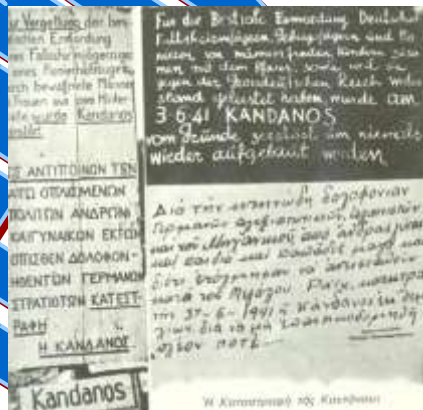 zur Vergeltung der bes-
tialischen Ermordung
eines Fallschirmjägerzuges
eines Pionierhalbzuges
durch bewaffnete Männer
u. Frauen aus dem Hinter-
halte wurde Kandanos
zerstört.
ΑΝΤΙΠΟΙΝΩΝ ΤΩΝ
ΑΠΟ ΟΠΛΙΣΜΕΝΩΝ
ΠΟΛΙΤΩΝ ΑΝΔΡΩΝ
ΚΑΙ ΓΥΝΑΙΚΩΝ ΕΚ ΤΩΝ
ΟΠΙΣΘΕΝ ΔΟΛΟΦΟΝ-
ΗΘΕΝΤΩΝ ΓΕΡΜΑΝΩΝ
ΣΤΡΑΤΙΩΤΩΝ ΚΑΤΕΣΤ-
ΡΑΦΗ
Η ΚΑΝΔΑΝΟΣ
Kandanos
Für die Bestiale Ermordung Deutscher
Fallschirmjäger, Gebirgsjäger und Pio-
niere von Männern, Frauen, Kindern zusam-
men mit dem Pfarrer sowie weil sie
gegen das Grossdeutschen Reich wider-
stand geleistet haben wurde am
3 6.41 KANDANOS
vom Grunde zerstört um niemals
wieder aufgebaut werden
Διά την κτηνώδη δολοφονίαν
Γερμανών αλεξιπτωτιστών,
και του Μηχανικού από άνδρας
και παιδιά και παπάδες μαζί και
διότι ετόλμησαν να αντισταθούν
κατά του Μεγάλου Ράιχ κατεστρά
την 3ην-6-1941 η Κάνδανος
διά να μη επανοικοδομηθή
πλέον ποτέ
Ή Καταστροφή τής Καντάνου